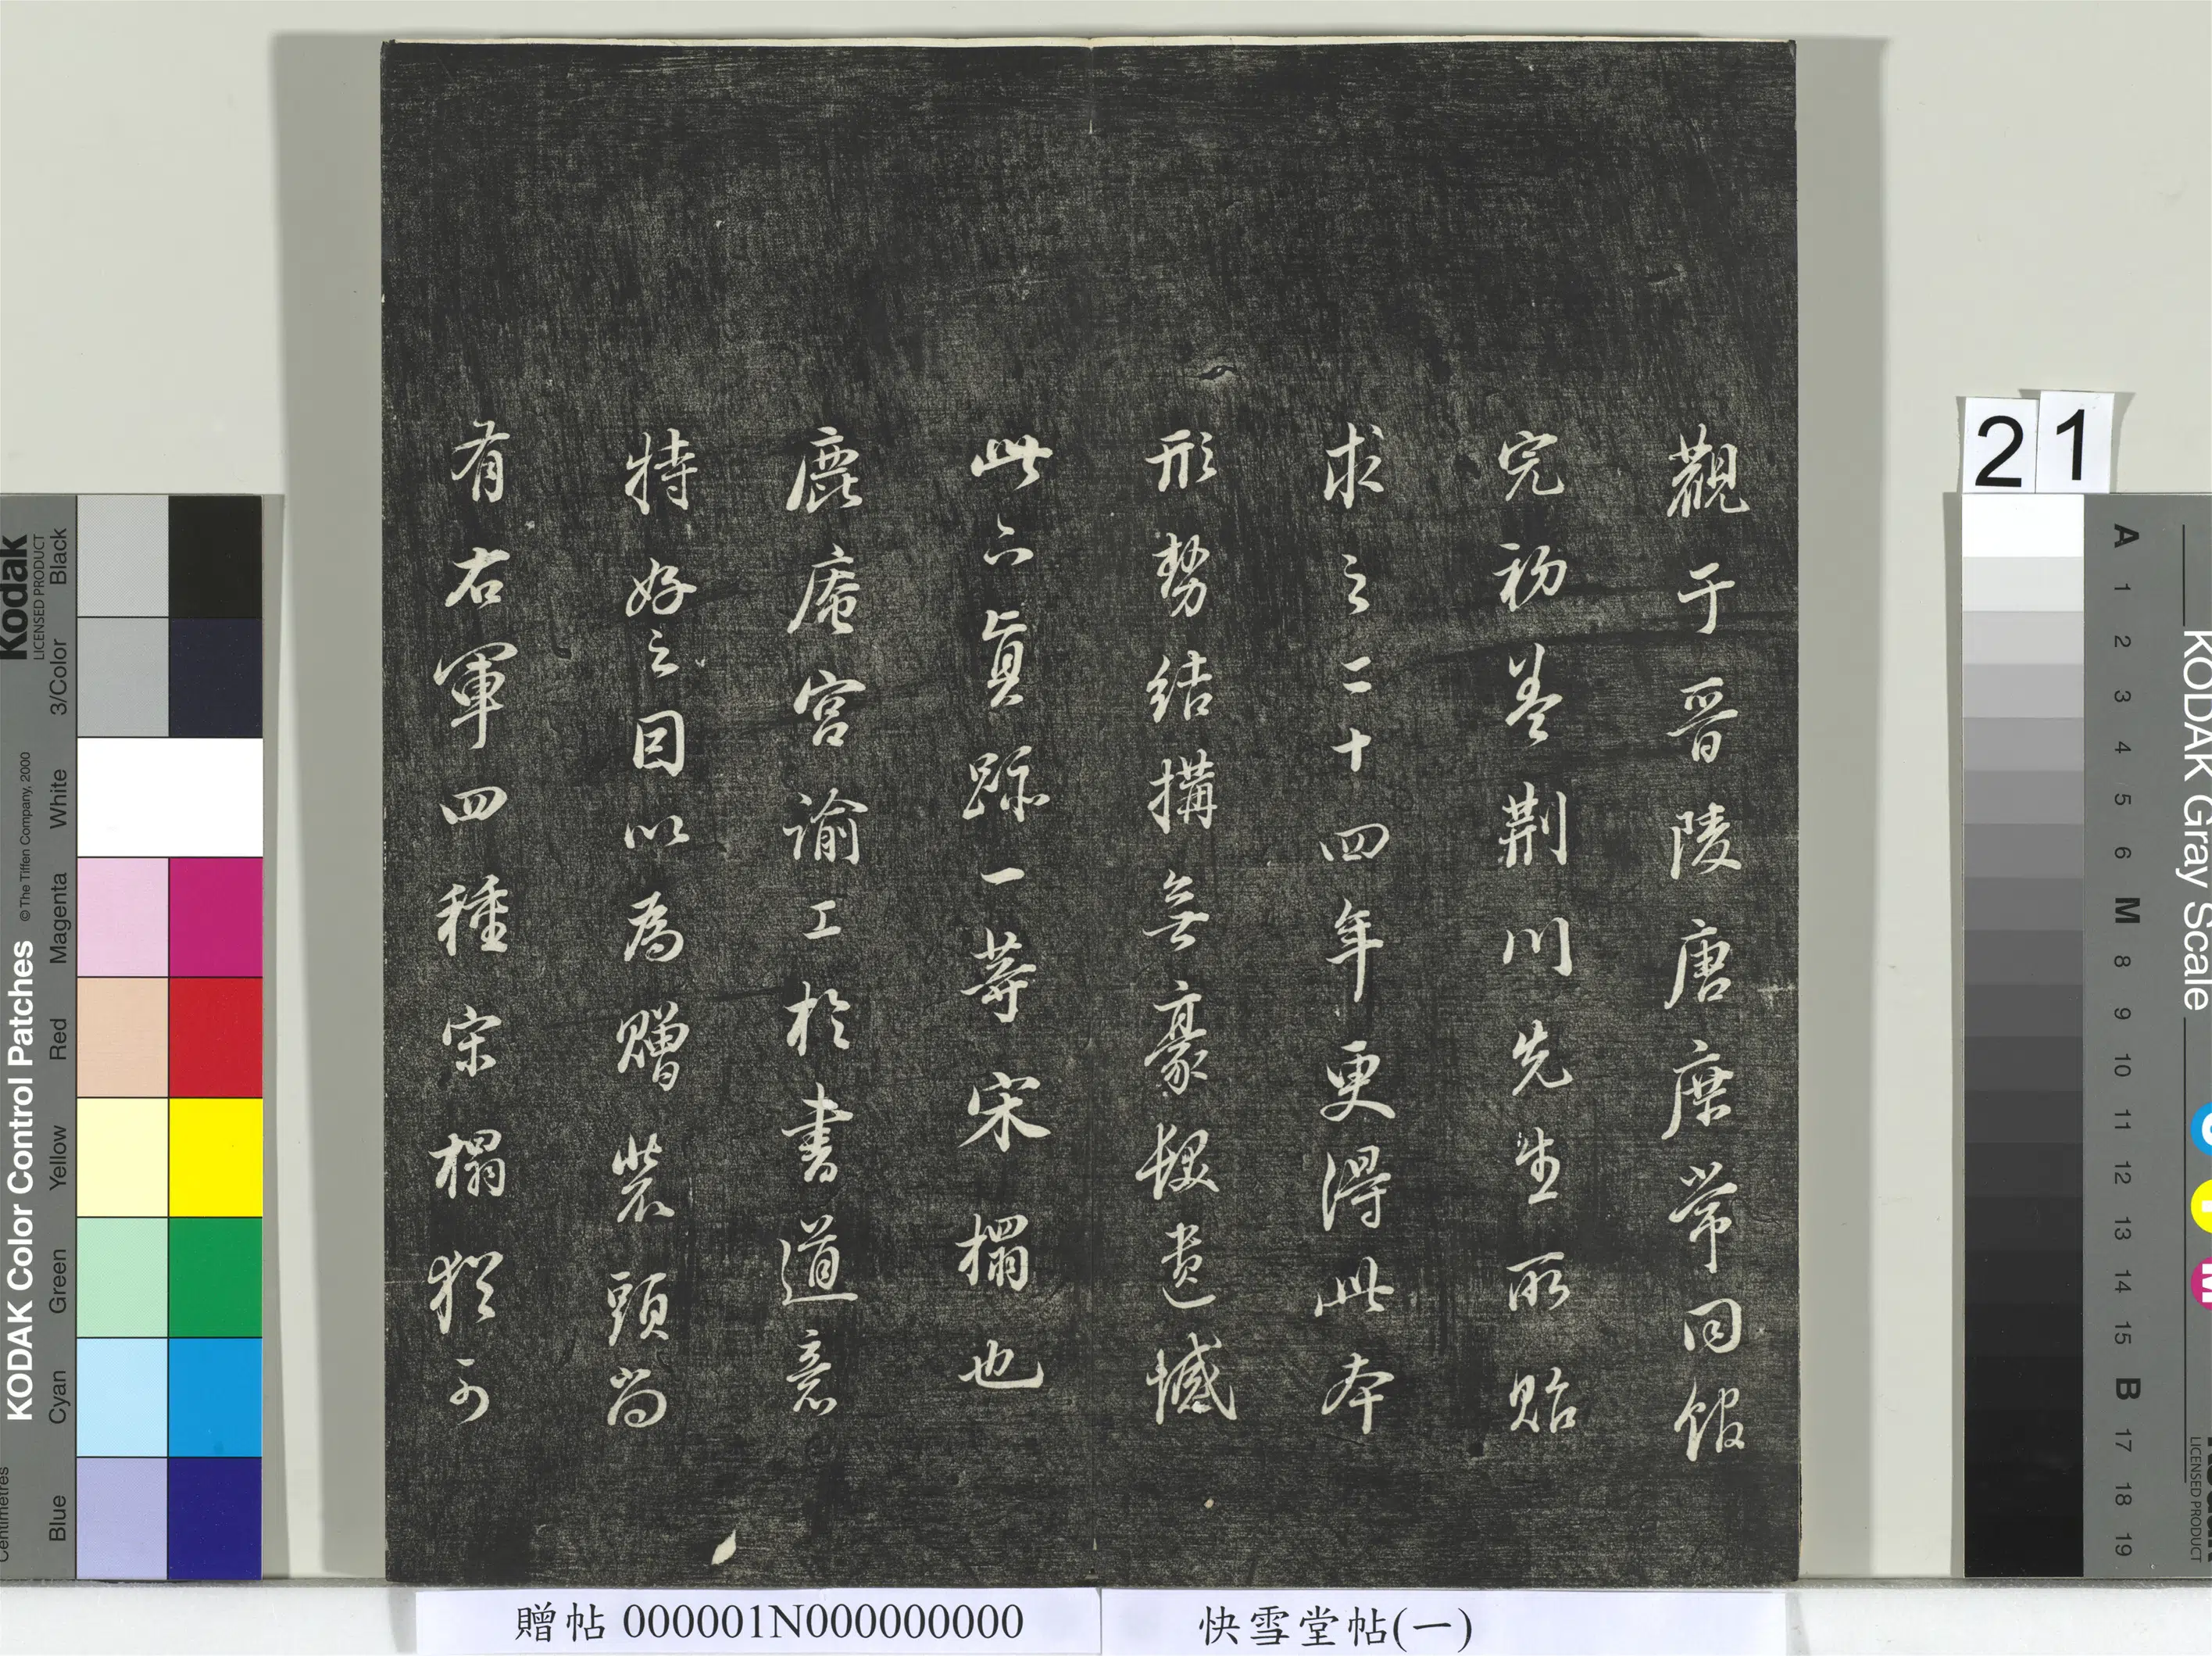 觀于晉陵唐庶常同館
完初葢荆川先生所貽
求之二十四年更得此本
形勢結搆無豪髮遺憾
此六真跡一等宋榻也
鹿庵宮諭工於書道意
特好之因以為贈裝頭尚
有右軍四種宋榻猶可
贈帖 000001N000000000
快雪堂帖(一)
21
Kodak
LICENSED PRODUCT
KODAK Color Control Patches
© The Tiffen Company, 2000
Centimetres
Blue
Cyan
Green
Yellow
Red
Magenta
White
3/Color
Black
KODAK Gray Scale
A 1 2 3 4 5 6 M 8 9 10 11 12 13 14 15 B 17 18 19
C
Y
M
LICENSED PRODUCT